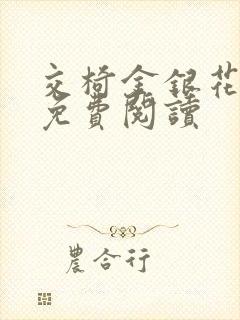 交椅金銀花
免費閱讀
農合行